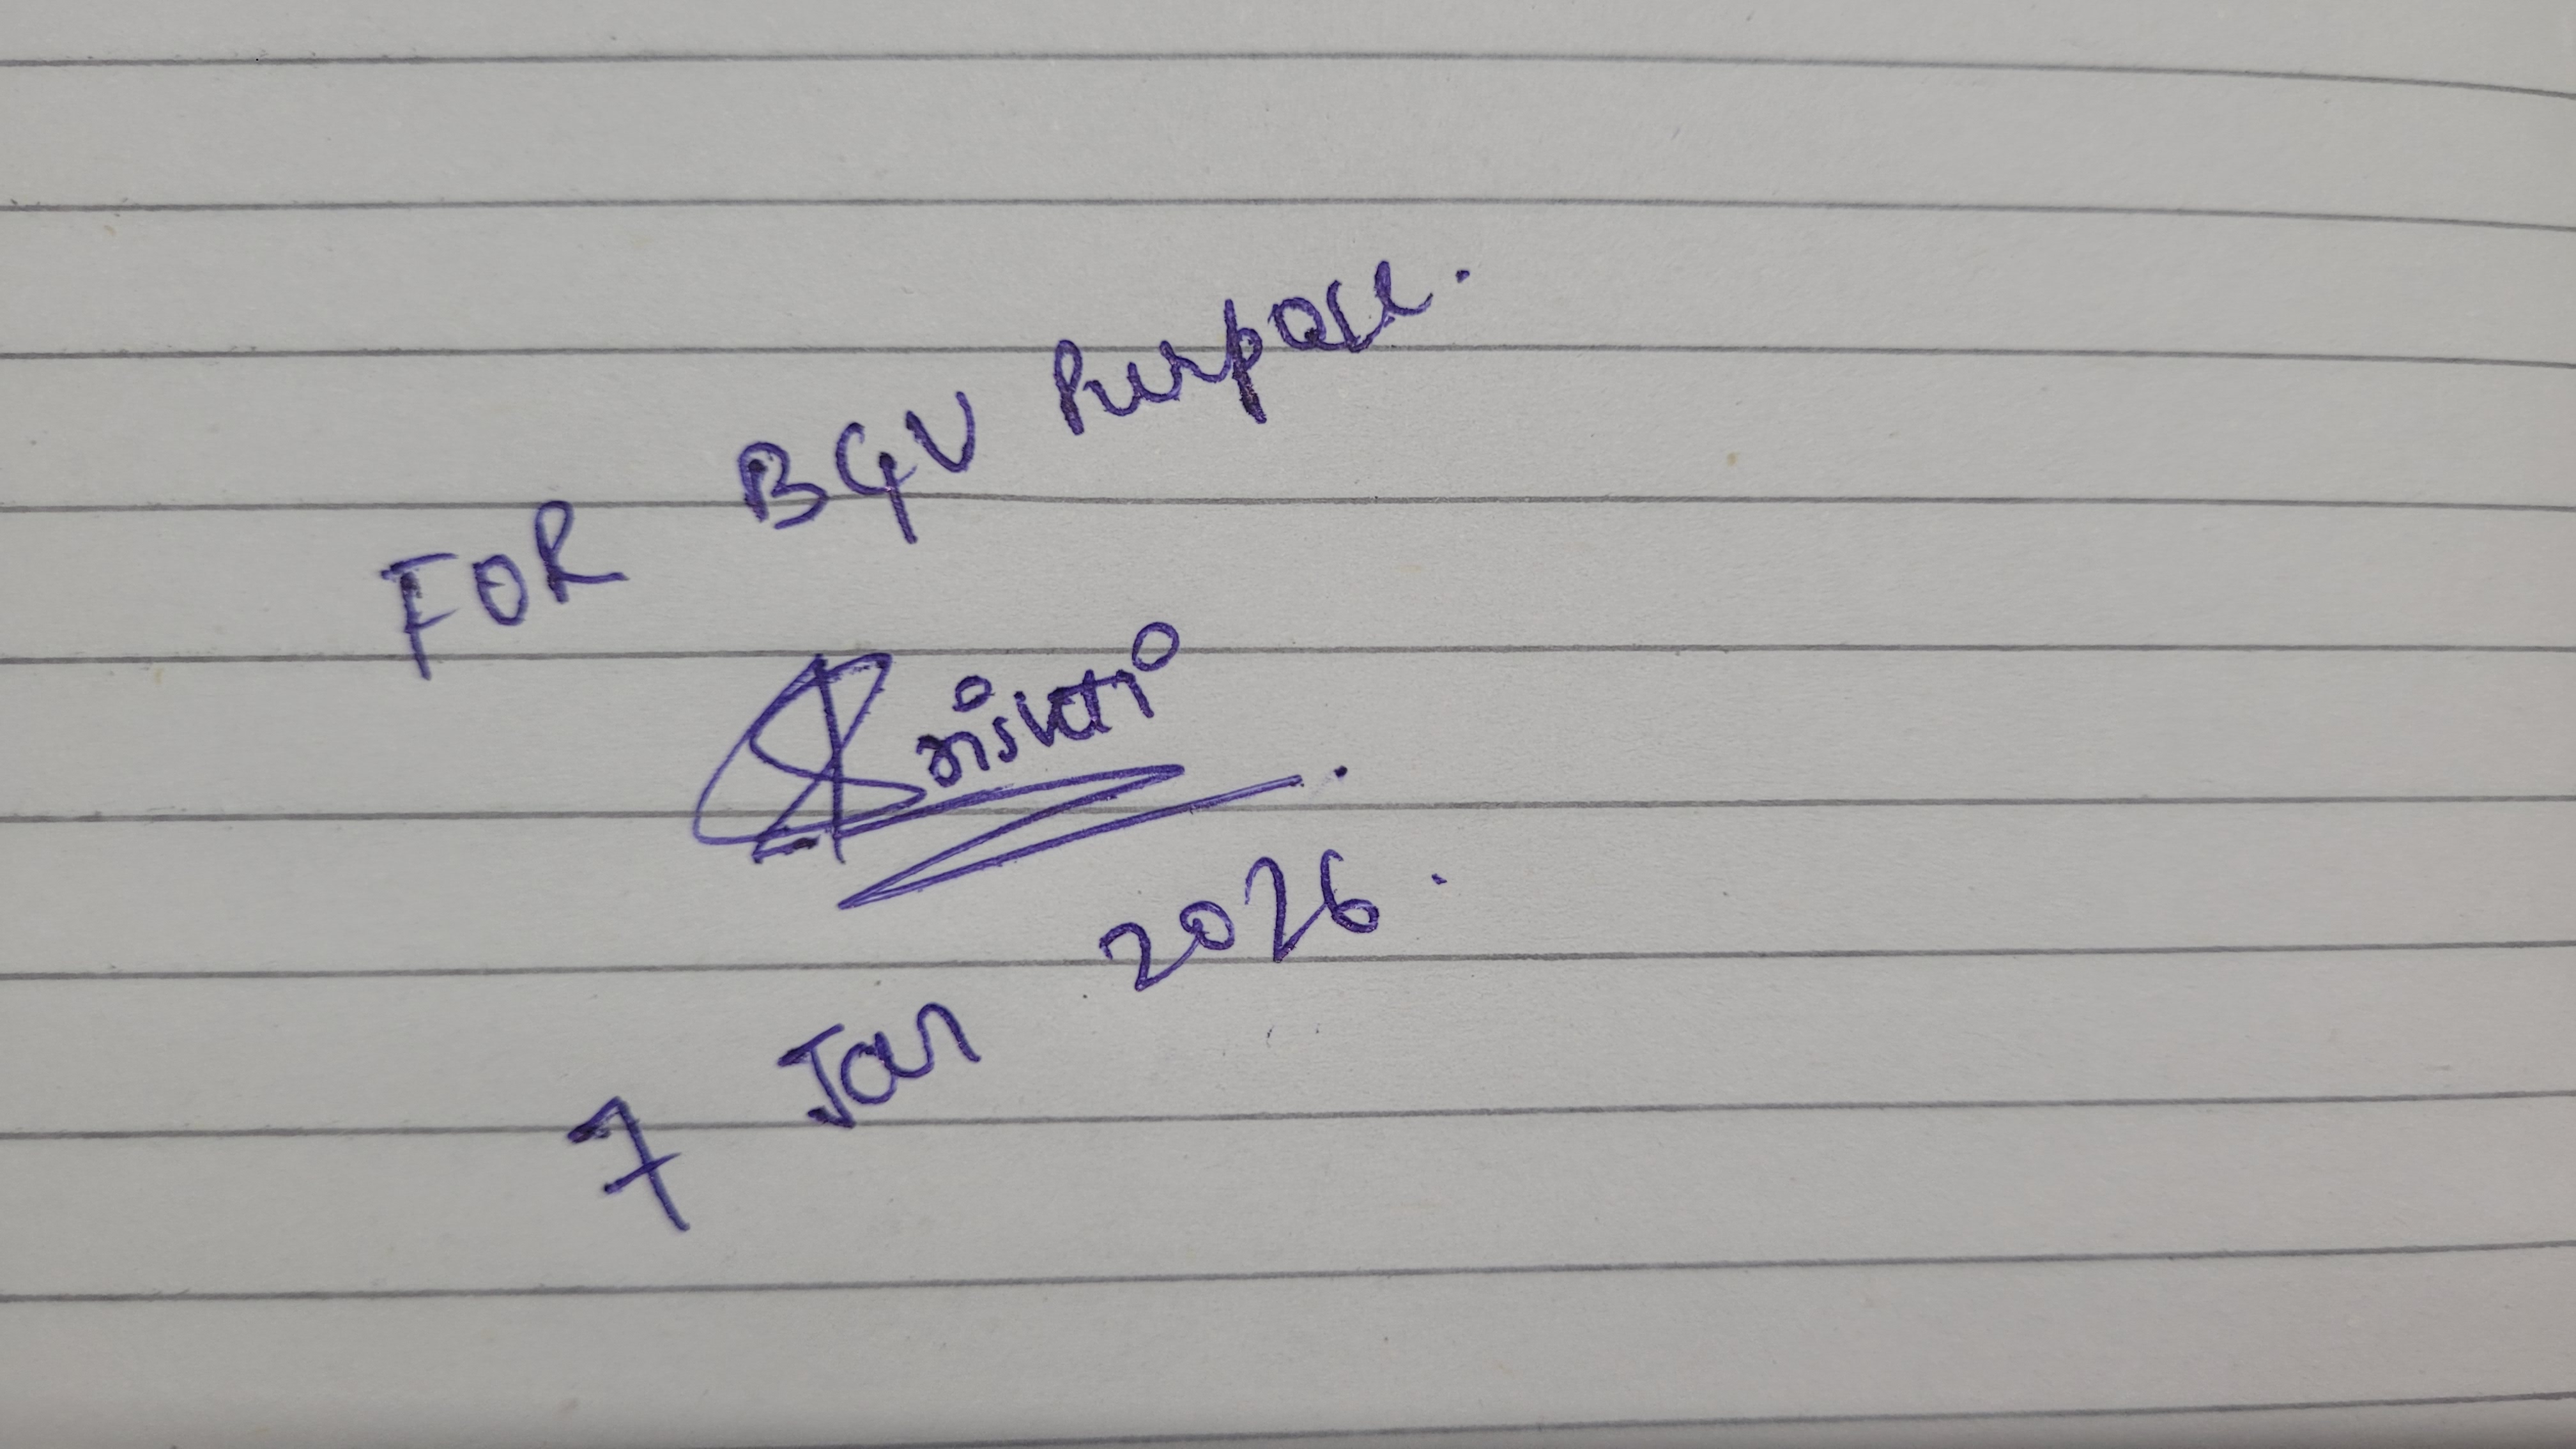 FOR BGV Purpose.
7 Jan 2026.